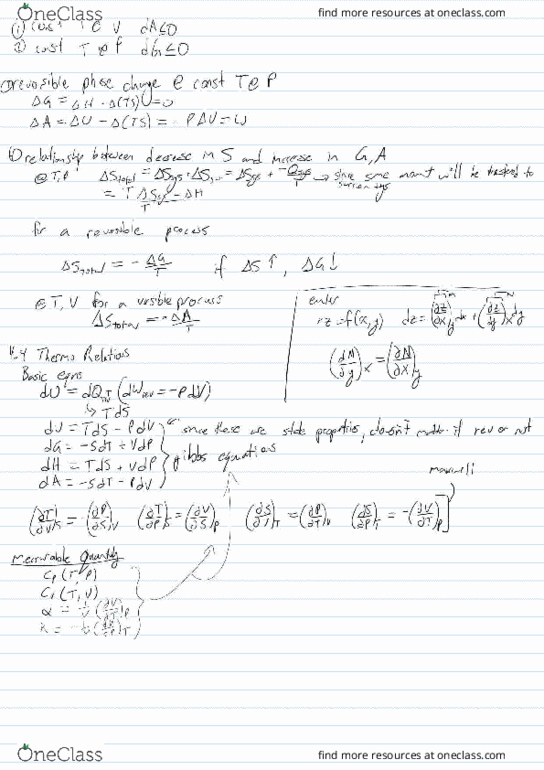 OneClass
find more resources at oneclass.com
① const T e V dA≤0
② const T e P dG≤0
irreversible phase change @ const T@P
ΔG = ΔH - Δ(TS) = 0
ΔA = ΔU - Δ(TS) = -PΔV = W
relationship between decrease in S and increase in G, A
@ T, P ΔStotal = ΔSsys + ΔSsurr = ΔSsys + -Qsys/T → since same amount will be to surroundings
= TΔSsys - ΔH / T
for a reversible process
ΔStotal = -ΔG/T if ΔS↑, ΔG↓
@ T, V for a process
ΔStotal = -ΔA/T
euler
z = f(x,y) dz = (∂z/∂x)y dx + (∂z/∂y)x dy
(∂M/∂y)x = (∂N/∂x)y
4.4 Thermo Relations
Basic eqns
dU = dQ + (dWrev = -PdV)
↳ TdS
dU = TdS - PdV
dG = -SdT + VdP
dH = TdS + VdP
dA = -SdT - PdV
since these are state properties, doesn't matter if rev or not
gibbs equations
maxwell
(∂T/∂V)S = -(∂P/∂S)V (∂T/∂P)S = (∂V/∂S)P (∂S/∂V)T = (∂P/∂T)V (∂S/∂P)T = -(∂V/∂T)P
Measurable Quantity
Cp (T, P)
Cv (T, V)
α = 1/V (∂V/∂T)P
κ = -1/V (∂V/∂P)T
OneClass
find more resources at oneclass.com